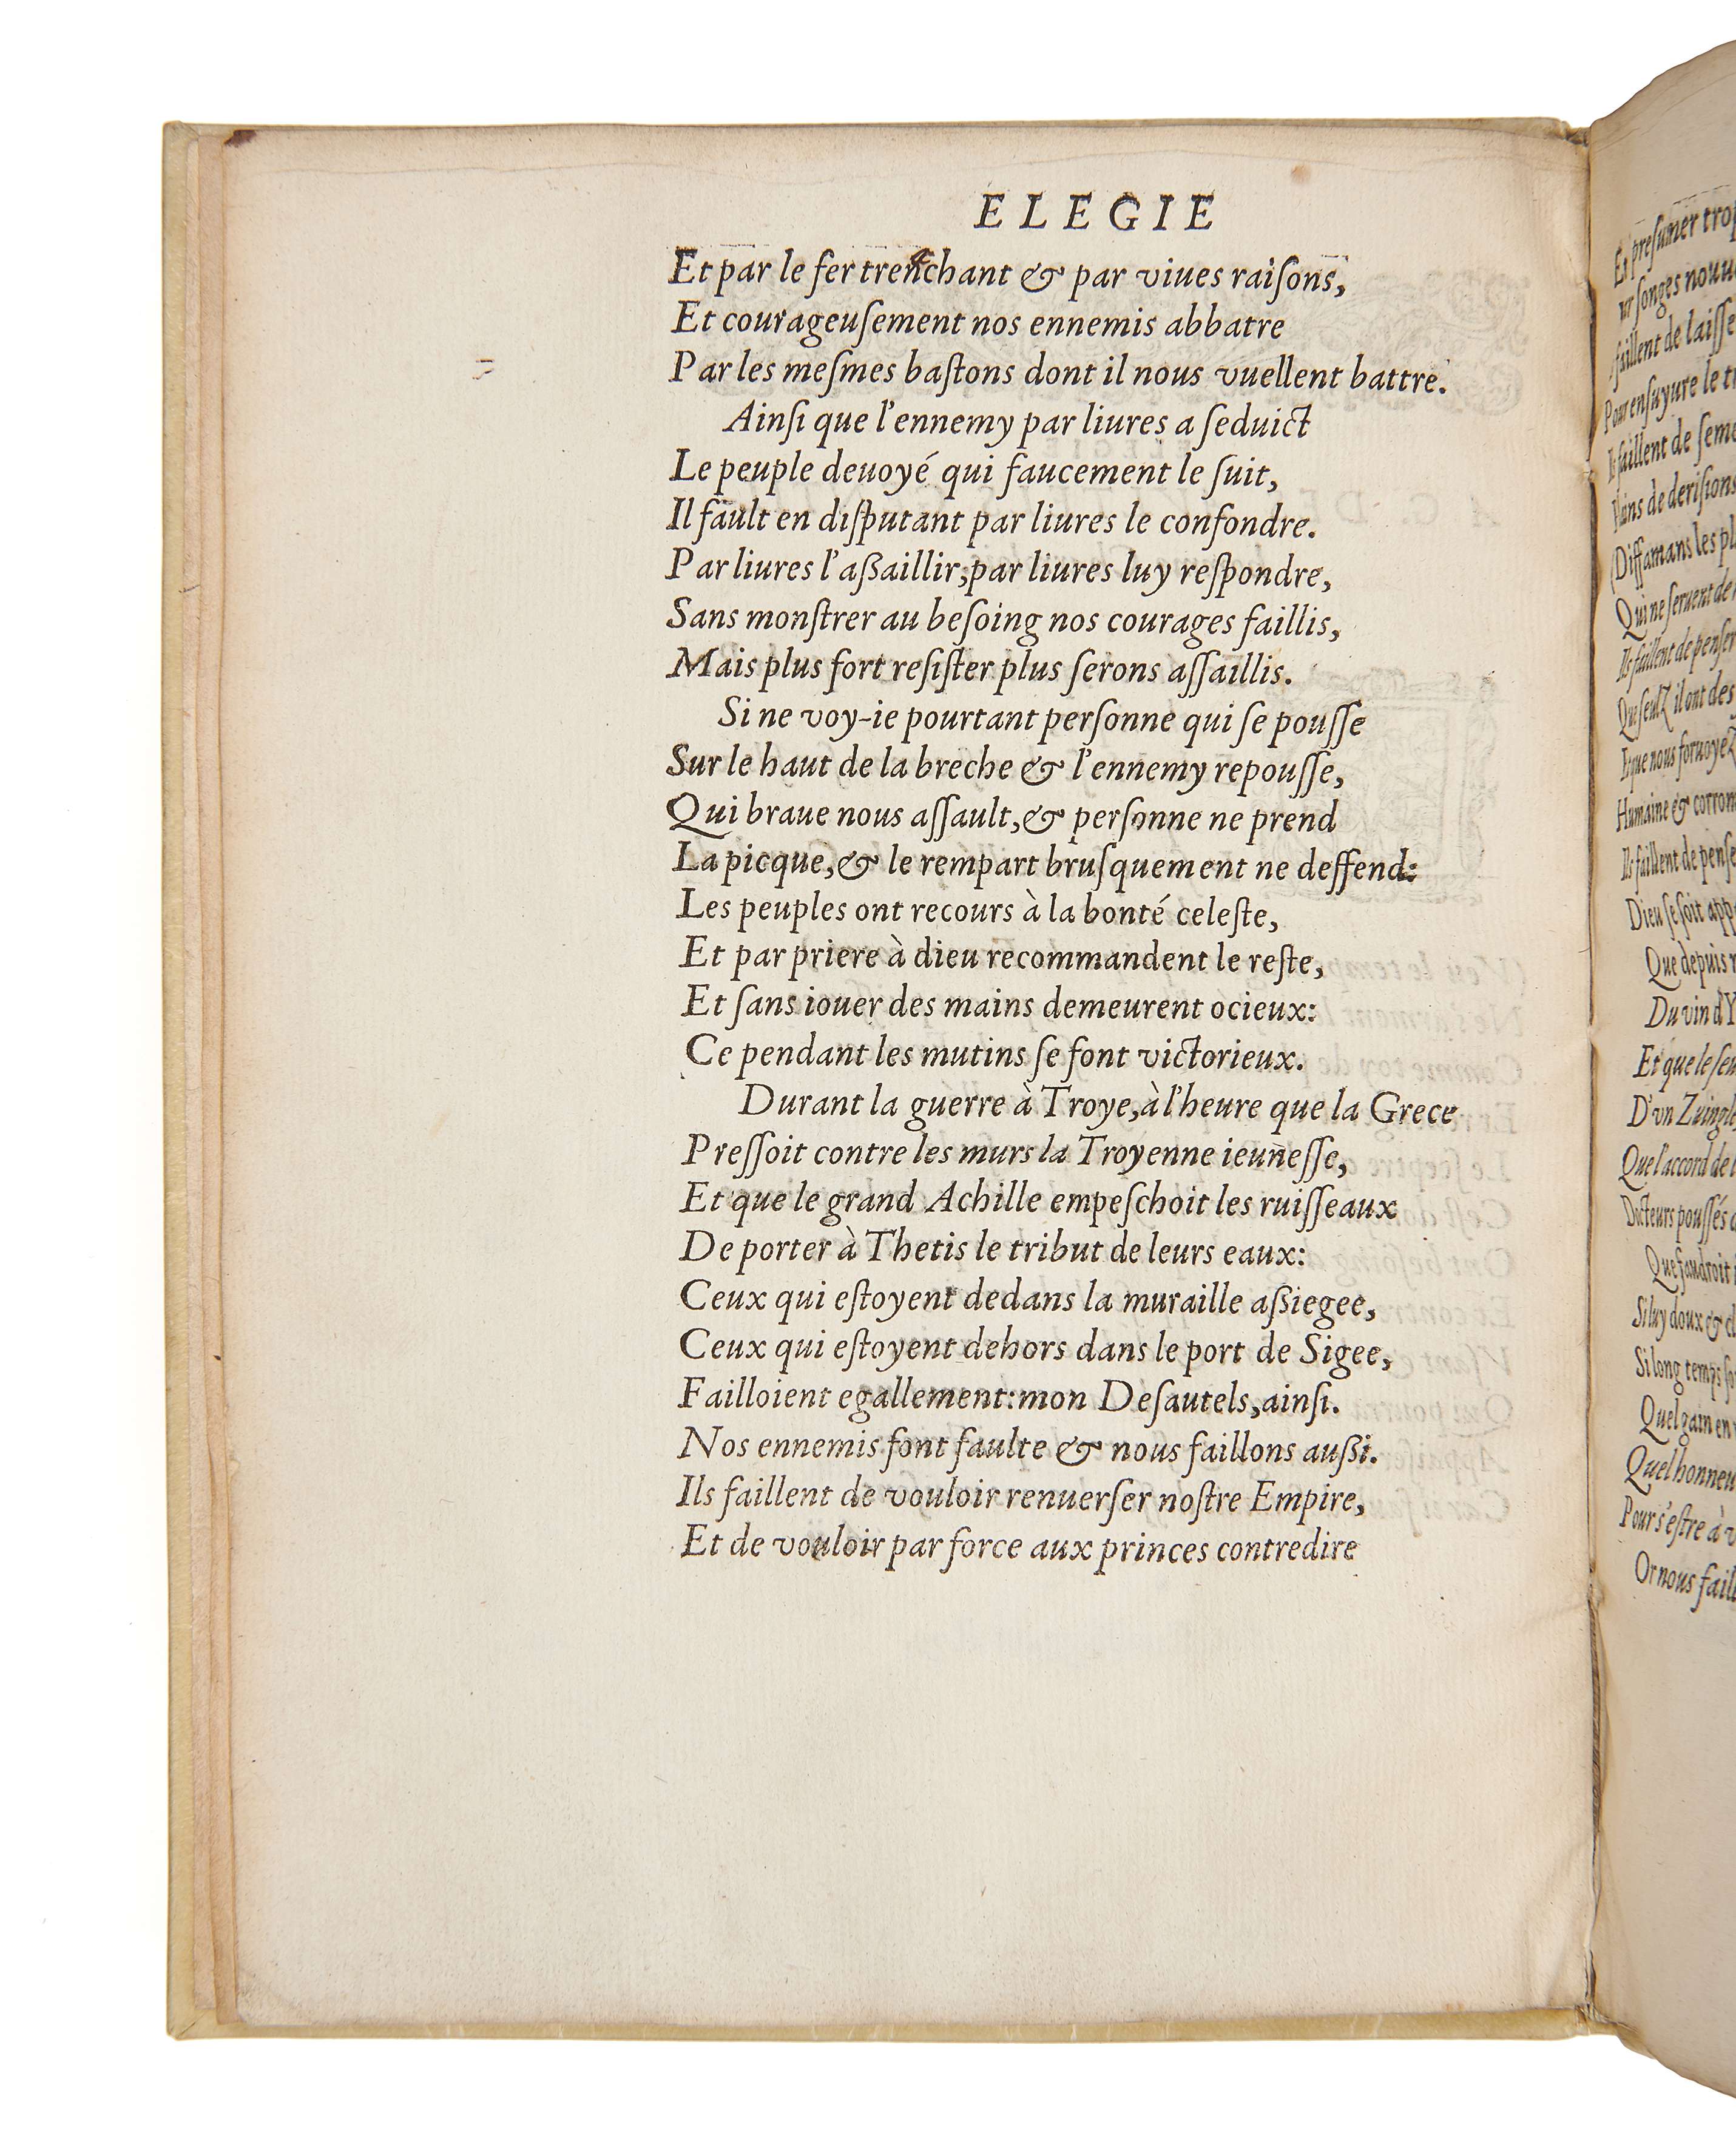 ELEGIE
Et par le fer trenchant & par viues raiſons,
Et courageuſement nos ennemis abbatre
Par les meſmes baſtons dont il nous vuellent battre.
Ainſi que l'ennemy par liures a ſeduict
Le peuple deuoyé qui faucement le ſuit,
Il fault en diſputant par liures le confondre.
Par liures l'aſſaillir, par liures luy reſpondre,
Sans monſtrer au beſoing nos courages faillis,
Mais plus fort reſiſter plus ſerons aſſaillis.
Si ne voy-ie pourtant perſonne qui ſe pouſſe
Sur le haut de la breche & l'ennemy repouſſe,
Qui braue nous aſſault, & perſonne ne prend
La picque, & le rempart bruſquement ne deffend:
Les peuples ont recours à la bonté celeſte,
Et par priere à dieu recommandent le reſte,
Et ſans iouer des mains demeurent ocieux:
Ce pendant les mutins ſe font victorieux.
Durant la guerre à Troye, à l'heure que la Grece
Preſſoit contre les murs la Troyenne ieuneſſe,
Et que le grand Achille empeſchoit les ruiſſeaux
De porter à Thetis le tribut de leurs eaux:
Ceux qui eſtoyent dedans la muraille aſſiegee,
Ceux qui eſtoyent dehors dans le port de Sigee,
Failloient egallement: mon Deſautels, ainſi.
Nos ennemis font faulte & nous faillons auſſi.
Ils faillent de vouloir renuerſer noſtre Empire,
Et de vouloir par force aux princes contredire
Et preſumer
ſonges
faillent de
Pour enſuyure le
faillent de
de deriſions
Diffamans les
Qui ne ſeruent de
Ils faillent de penſer
Que ſeulz il ont des
que nous
Humaine &
Ils faillent de
Dieu ſe ſoit
Que depuis
Du vin
Et que le
D'vn
Que l'accord de
Docteurs pouſſés
Que faudroit
Si luy doux &
Si long temps
Quel gain en
Quel
Pour s'eſtre à
Or nous